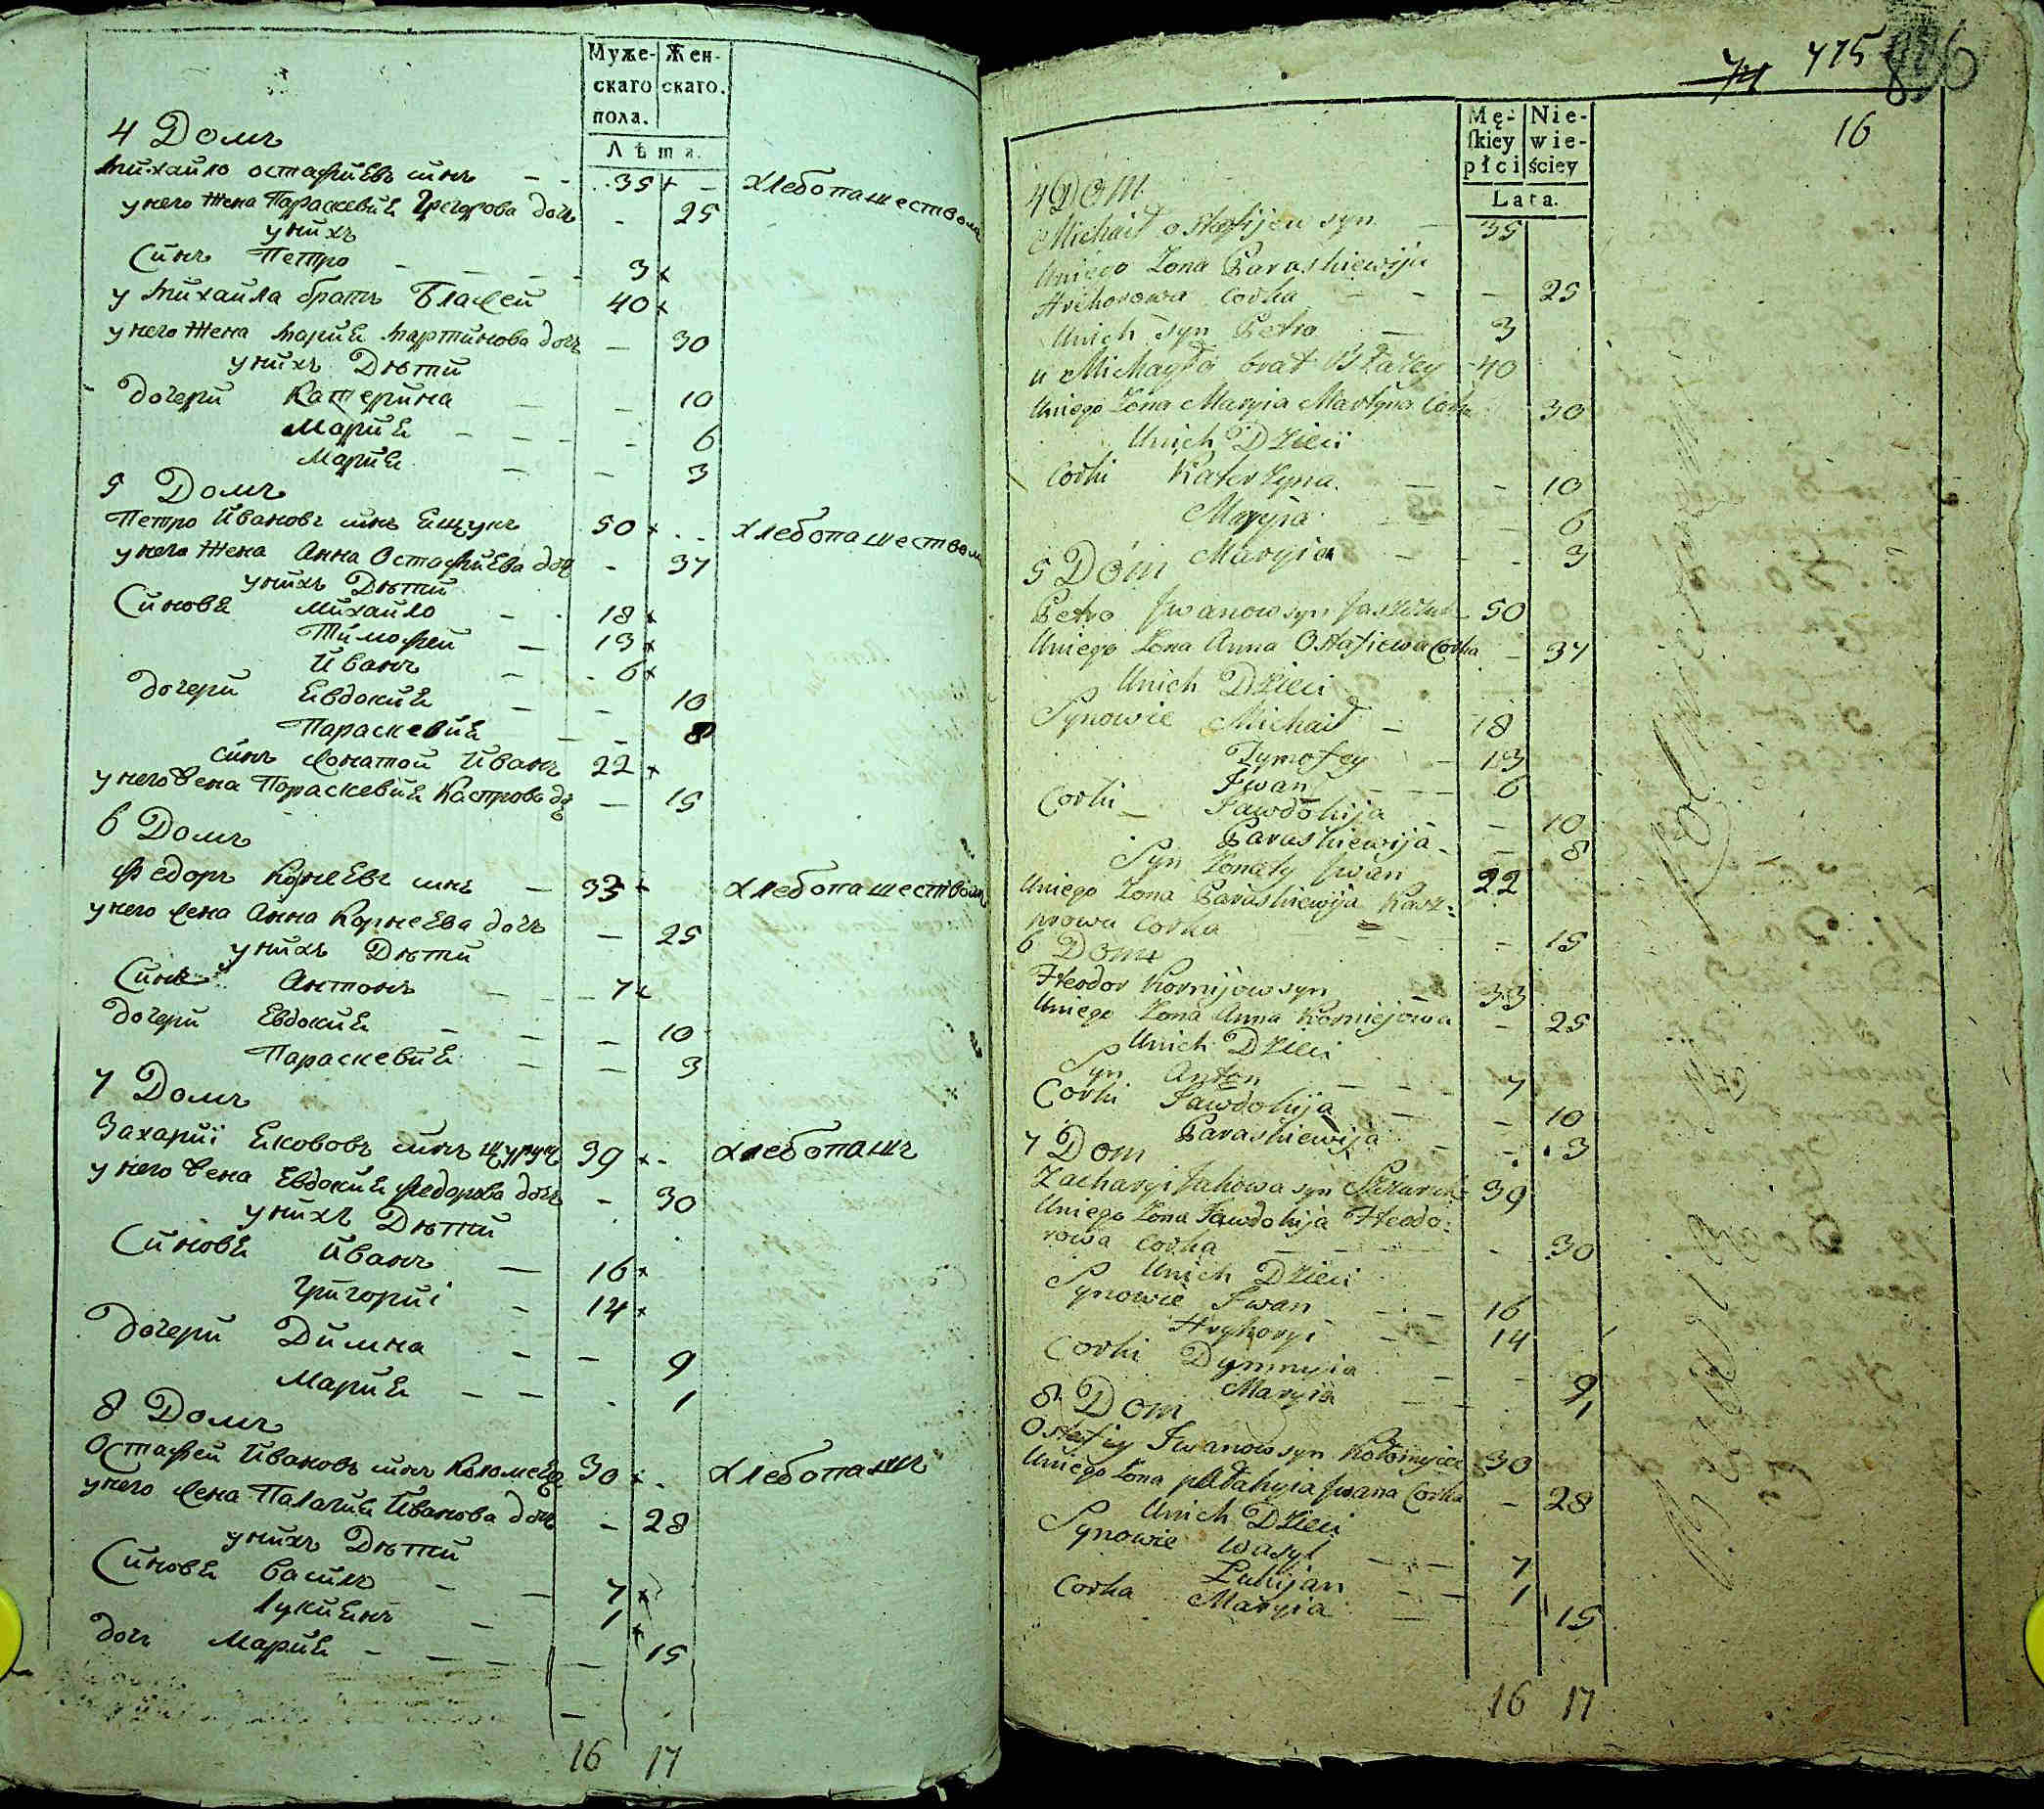 Муже- Жен-
скаго скаго.
пола.
Лѣта.
4 Домъ
Михайло остафиевъ синъ - - 35 х - хлебопашеством
у него жена Параскевия Грегорова дочь - 25
у нихъ
Синъ Петро - - - 3 х
у михаила братъ Блажей 40 х
у него жена мария мартинова дочь - 30
у нихъ Дѣти
дочери Катерина - - 10
Мария - - - - 6
Мария - - 3
5 Домъ
Петро Ивановъ синъ Ещукъ 50 х - - хлебопашеством
у него жена Анна Остафиева доч - 37
у нихъ Дѣти
Синовя михайло - - 18 х
Тимофей - 13 х
Иванъ - - 6 х
дочери Евдокия - - 10
Параскевия - - 8
синъ жонатой Иванъ 22 х
у него жена Параскевия Кастрова до - 15
6 Домъ
Федоръ Корнеевъ синъ - 33 х хлебопашеством
у него жена Анна Корнеева дочь - 25
у нихъ Дѣти
Синъ Антонъ - - - 7 х
дочери Евдокия - - - 10
Параскевия - - 3
7 Домъ
Захарий Ековов синъ щурук 39 х - хлебопашъ
у него жена Евдокия федорова дочь - 30
у нихъ Дѣти
Синовя Иванъ - 16 х
Григорий - 14 х
дочери Димна - - 9
Мария - - - 1
8 Домъ
Остафей Ивановъ синъ Коломеец 30 х - хлебопашъ
у него жена Палагия Иванова дочь - 28
у нихъ Дѣти
Синовя василъ - - 7 х
Лукиянъ - 1 х
доч Мария - - - - 15
16 17
74 475 896
Mę- Nie-
skiey wie-
płci ściey
Lata.
16
4 Dom
Michaił ostafijew syn - 35
Uniego Żona Paraskiewija
Hrihorowa Corka - - - 25
Unich syn Petro - 3
u Michayła brat Błażey - 40
Uniego Żona Maryia Martyna Corka 30
Unich Dzieci
Corki Katerzyna - - 10
Maryia - 6
Maryia - - - 3
5 Dom
Petro Jwanow syn Jaszczuk 50
Uniego Żona Anna Ostafiewa Corka - 37
Unich Dzieci
Synowie Michaił - 18
Tymofey - 13
Jwan - - - 6
Corki - Jawdokija - - 10
Paraskiewija - - 8
Syn Żonaty Jwan 22
Uniego Żona Paraskiewija Kasz:
prowa Corka - - - 15
6 Dom
Heodor Kornijow syn 33
Uniego Żona Anna Korniejowa - 25
Unich Dzieci
Syn Anton - - - 7
Corki Jawdokija - - 10
Paraskiewija - - 3
7 Dom
Zacharyi Jakowa syn Szczuruk 39
Uniego Żona Jawdokija Heodo:
rowa Corka - - - 30
Unich Dzieci
Synowie Jwan - - 16
Hryhoryi - - 14
Corki Dymnyia - - 9
Maryia - - - 1
8 Dom
Ostafiy Jwanow syn Kołomyiec 30
Uniego Żona pałahyia Jwana Corka - 28
Unich Dzieci
Synowie Wasyl - - 7
Łukijan - - 1
Corka Maryia - - 15
16 17